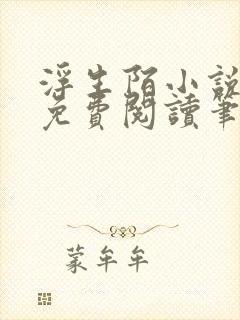 浮生陌小說
免費閱讀筆
蒙牟牟